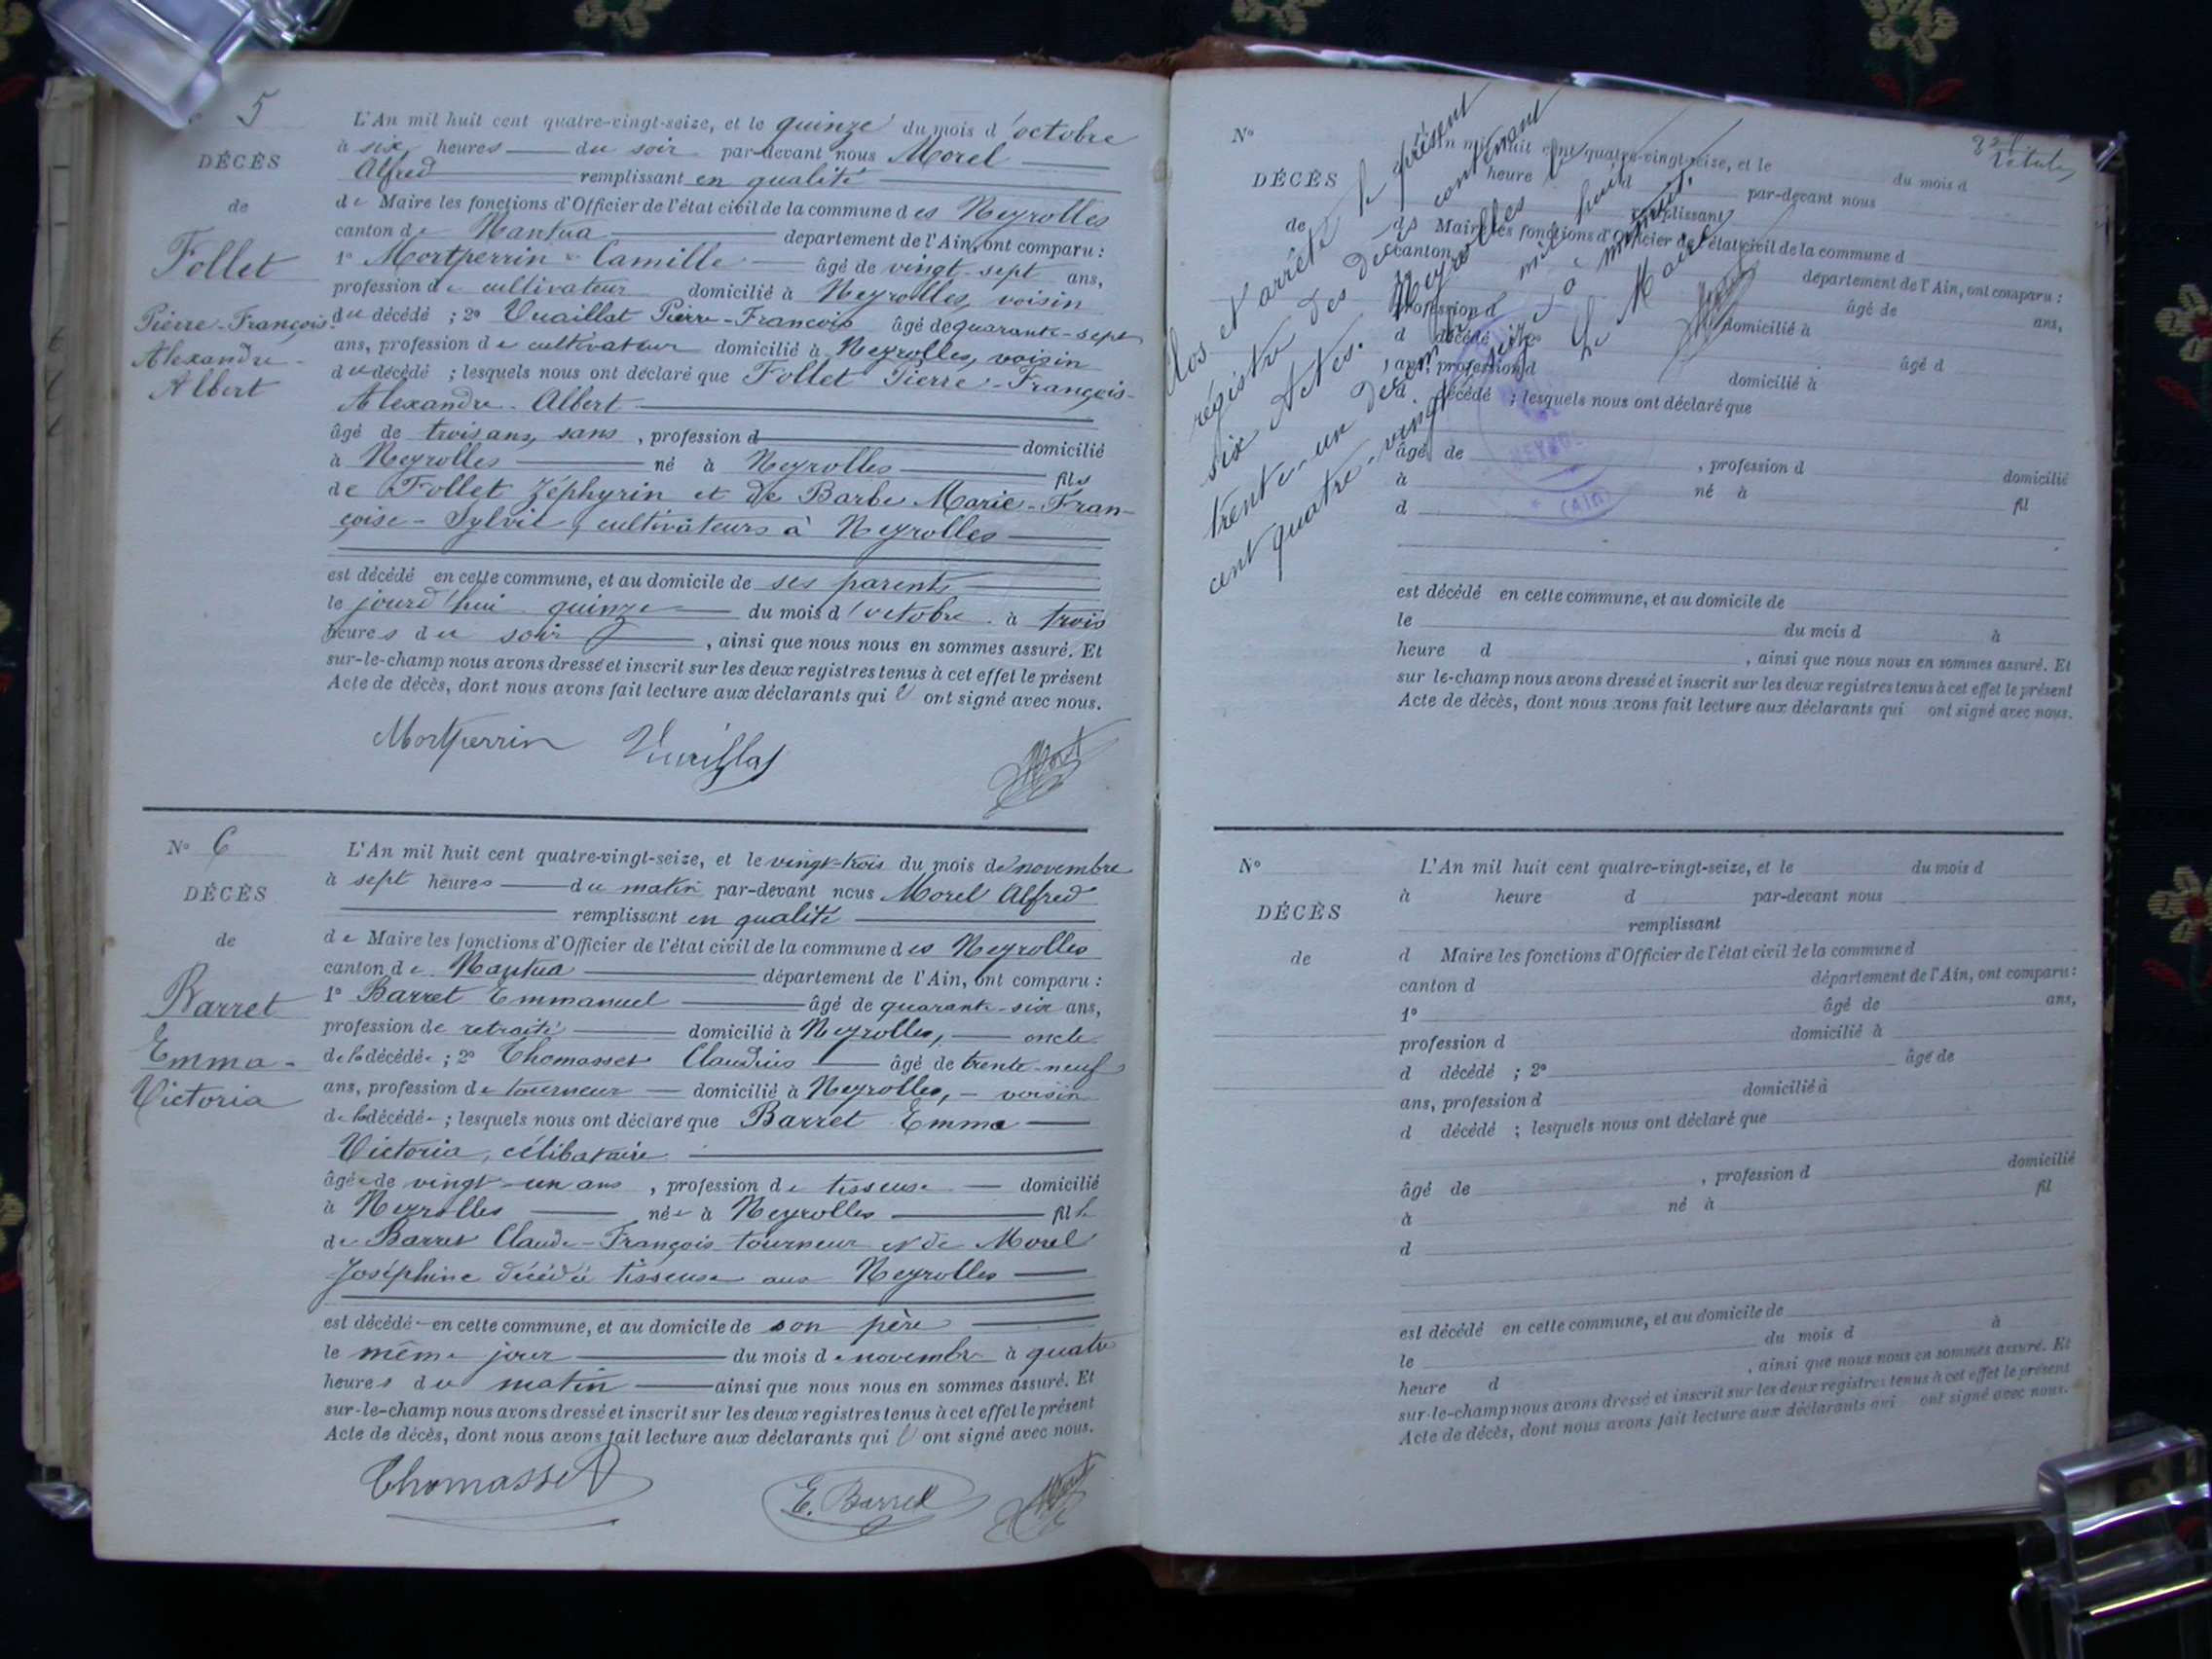 5
DÉCÈS
de
Follet
Pierre-François
Alexandre-
Albert
L'An mil huit cent quatre-vingt-seize, et le quinze du mois d'octobre
à six heures du soir par-devant nous Morel
Alfred remplissant en qualité
de Maire les fonctions d'Officier de l'état civil de la commune des Neyrolles
canton de Nantua département de l'Ain, ont comparu :
1° Mortperrin Camille âgé de vingt-sept ans,
profession de cultivateur domicilié à Neyrolles, voisin
du décédé ; 2° Vuaillat Pierre-François âgé de quarante-sept
ans, profession de cultivateur domicilié à Neyrolles, voisin
du décédé ; lesquels nous ont déclaré que Follet Pierre-François-
Alexandre-Albert
âgé de trois ans, sans , profession d domicilié
à Neyrolles né à Neyrolles fils
de Follet Zéphyrin et de Barbe Marie-Fran-
çoise-Sylvie, cultivateurs à Neyrolles
est décédé en cette commune, et au domicile de ses parents
le jourd'hui quinze du mois d'octobre à trois
heures du soir , ainsi que nous nous en sommes assuré. Et
sur-le-champ nous avons dressé et inscrit sur les deux registres tenus à cet effet le présent
Acte de décès, dont nous avons fait lecture aux déclarants qui ont signé avec nous.
Mortperrin Vuaillat
N° 6
DÉCÈS
de
Barret
Emma-
Victoria
L'An mil huit cent quatre-vingt-seize, et le vingt-trois du mois de novembre
à sept heures du matin par-devant nous Morel Alfred
remplissant en qualité
de Maire les fonctions d'Officier de l'état civil de la commune des Neyrolles
canton de Nantua département de l'Ain, ont comparu :
1° Barret Emmanuel âgé de quarante-six ans,
profession de retraité domicilié à Neyrolles, oncle
de la décédée ; 2° Thomasset Claudius âgé de trente-neuf
ans, profession de tourneur domicilié à Neyrolles, voisin
de la décédée ; lesquels nous ont déclaré que Barret Emma
Victoria, célibataire
âgée de vingt-un ans , profession de tisseuse domicilié
à Neyrolles née à Neyrolles fille
de Barret Claude-François tourneur et de Morel
Joséphine décédée tisseuse aux Neyrolles
est décédée en cette commune, et au domicile de son père
le même jour du mois de novembre à quatre
heures du matin ainsi que nous nous en sommes assuré. Et
sur-le-champ nous avons dressé et inscrit sur les deux registres tenus à cet effet le présent
Acte de décès, dont nous avons fait lecture aux déclarants qui ont signé avec nous.
Thomasset E. Barret
Clos et arrêté le présent
régistre des décès contenant
six Actes. Neyrolles le
trente-un décembre mil huit
cent quatre-vingt-seize à minuit.
Le Maire
(AIN)
N°
DÉCÈS
de
L'An mil huit cent quatre-vingt-seize, et le du mois d
heure d par-devant nous
remplissant
d Maire les fonctions d'Officier de l'état civil de la commune d
canton département de l'Ain, ont comparu :
âgé de ans,
profession d domicilié à
d décédé ; 2° âgé d
ans, profession d domicilié à
d décédé ; lesquels nous ont déclaré que
âgé de , profession d domicilié
à né à fil
d
est décédé en cette commune, et au domicile de
le du mois d à
heure d , ainsi que nous nous en sommes assuré. Et
sur le-champ nous avons dressé et inscrit sur les deux registres tenus à cet effet le présent
Acte de décès, dont nous avons fait lecture aux déclarants qui ont signé avec nous.
N°
DÉCÈS
de
L'An mil huit cent quatre-vingt-seize, et le du mois d
à heure d par-devant nous
remplissant
d Maire les fonctions d'Officier de l'état civil de la commune d
canton d département de l'Ain, ont comparu :
1° âgé de ans,
profession d domicilié à
d décédé ; 2° âgé de
ans, profession d domicilié à
d décédé ; lesquels nous ont déclaré que
âgé de , profession d domicilié
à né à fil
d
est décédé en cette commune, et au domicile de
le du mois d à
heure d , ainsi que nous nous en sommes assuré. Et
sur-le-champ nous avons dressé et inscrit sur les deux registres tenus à cet effet le présent
Acte de décès, dont nous avons fait lecture aux déclarants qui ont signé avec nous.